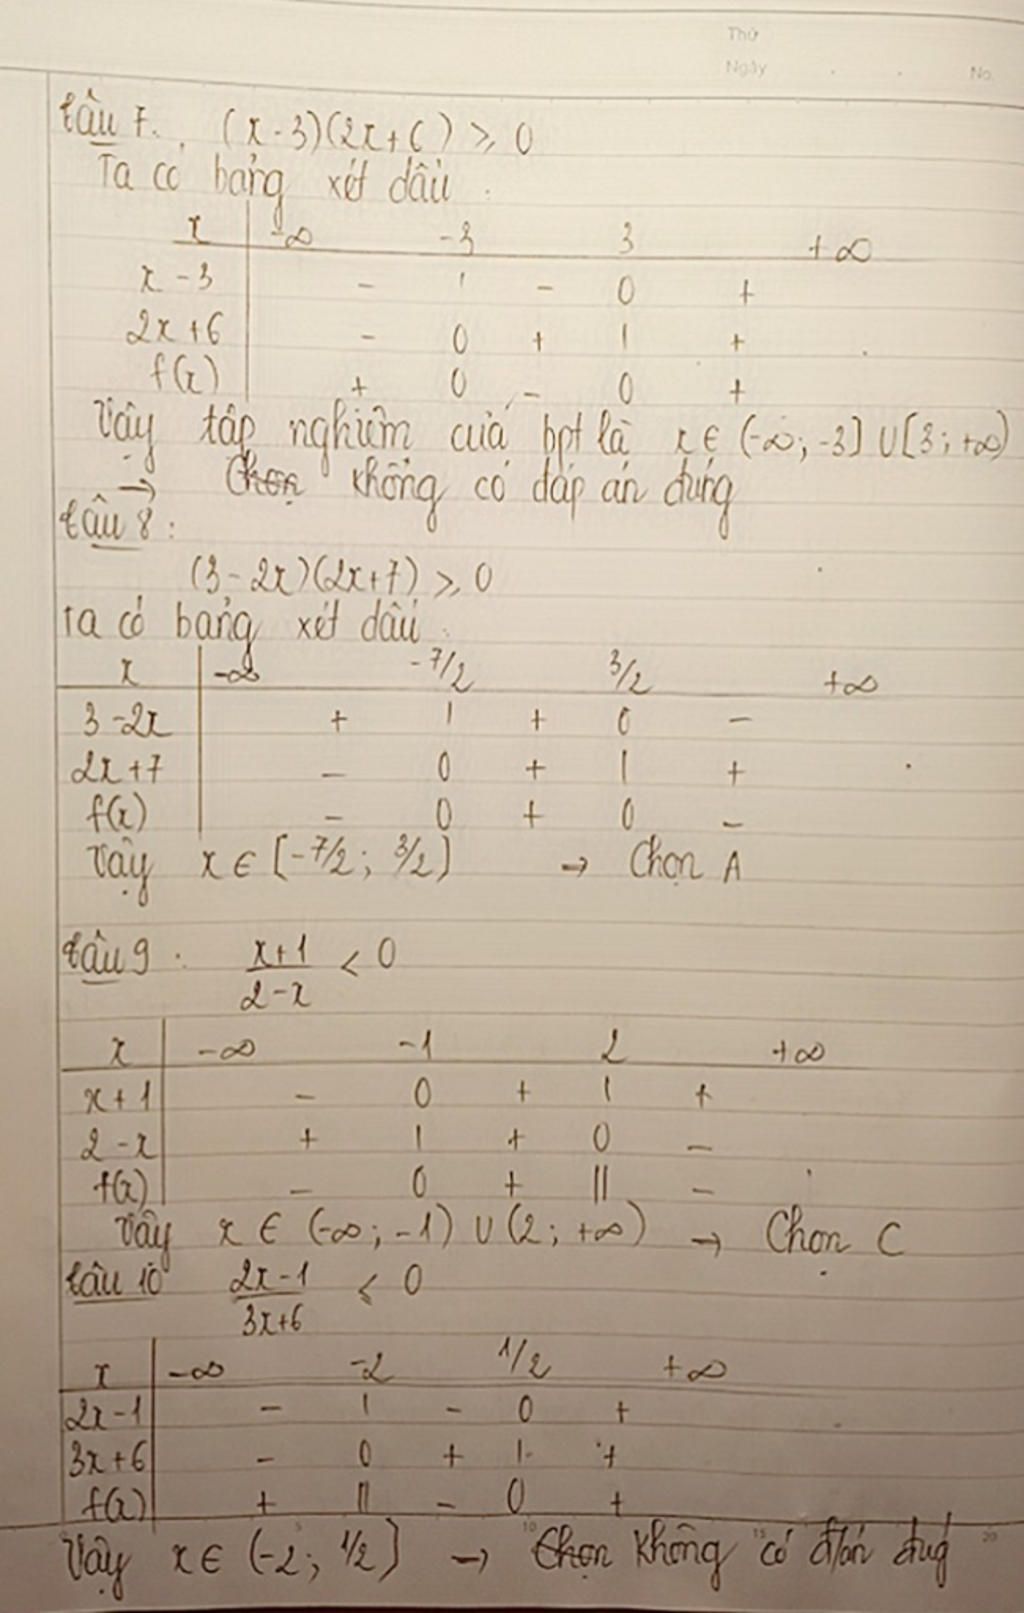 Thứ
Ngày . . No.
Câu 7. (x-3)(2x+6) ⩾ 0
Ta có bảng xét dấu.
x -∞ -3 3 +∞
x-3 - | - 0 +
2x+6 - 0 + | +
f(x) + 0 - 0 +
Vậy tập nghiệm của bpt là x ∈ (-∞; -3] ∪ [3; +∞)
→ Chọn không có đáp án đúng
Câu 8:
(3-2x)(2x+7) ⩾ 0
Ta có bảng xét dấu.
x -∞ -7/2 3/2 +∞
3-2x + | + 0 -
2x+7 - 0 + | +
f(x) - 0 + 0 -
Vậy x ∈ [-7/2; 3/2] → Chọn A
Câu 9: x+1/2-x < 0
x -∞ -1 2 +∞
x+1 - 0 + | +
2-x + | + 0 -
f(x) - 0 + || -
Vậy x ∈ (-∞; -1) ∪ (2; +∞) → Chọn C
Câu 10 2x-1/3x+6 ⩽ 0
x -∞ -2 1/2 +∞
2x-1 - | - 0 +
3x+6 - 0 + | +
f(x) + || - 0 +
Vậy x ∈ (-2; 1/2] → Chọn không có đ/án đúng